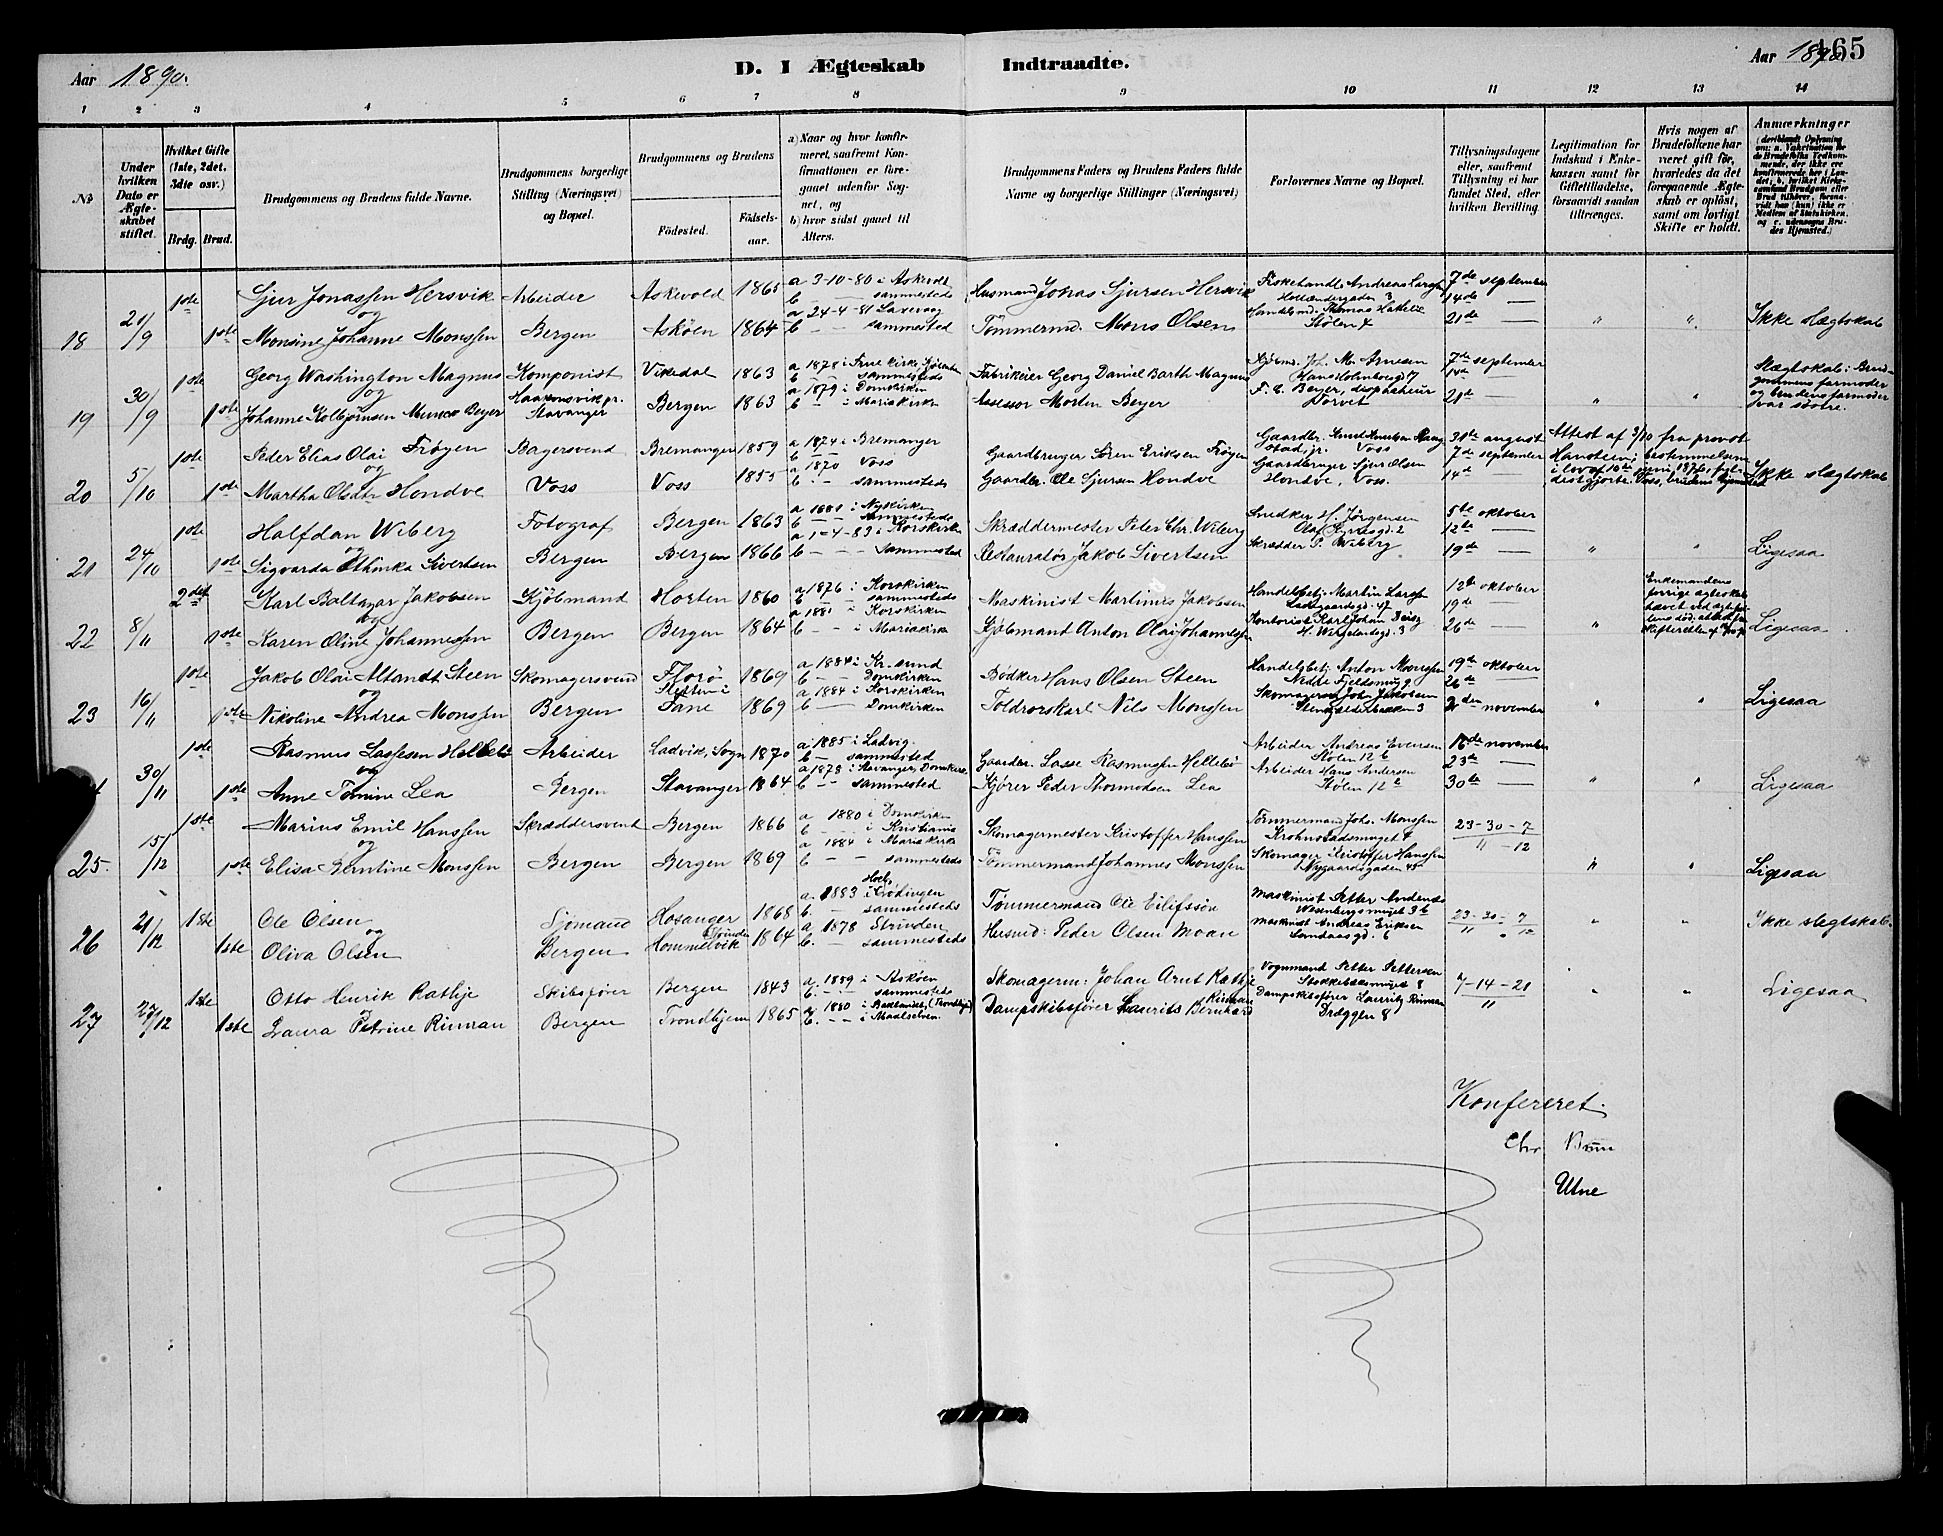 Aar 1890.
D. I Ægteskab Indtraadte.
Aar 1890
165
1 2 3 4 5 6 7 8 9 10 11 12 13 14
No
Under hvilken Dato er Ægteskabet stiftet.
Hvilket Gifte (1ste, 2det, 3die osv.)
Brdg. Brud.
Brudgommens og Brudens fulde Navne.
Brudgommens borgerlige Stilling (Næringsvei) og Bopæl.
Brudgommens og Brudens
Födested. Födsels-aar.
a) Naar og hvor konfirmeret, saafremt Konfirmationen er foregaaet udenfor Sognet, og
b) hvor sidst gaaet til Alters.
Brudgommens Faders og Brudens Faders fulde Navne og borgerlige Stillinger (Næringsvei)
Forlovernes Navne og Bopæl.
Tillysningsdagene eller, saafremt Tillysning ei har fundet Sted, efter hvilken Bevilling.
Legitimation for Indskud i Enkekassen samt for Giftetilladelse, forsaavidt saadan tiltrænges.
Hvis nogen af Brudefolkene har været gift før, hvorledes da det foregaaende Ægteskab er opløst, samt om lovligt Skifte er holdt.
Anmærkninger
1ste Sjur Jonassen Hersvik Arbeider Askevold 1865 a 3-10-80 i Askevold b — sammesteds Husmand Jonas Sjursen Hersvik Fiskehandl. Andreas Larsen Hollændergaden 3 7de september 14de —
18 21/9 1ste og Monsine Johanne Monssen Bergen Askøen 1864 a 24-4-81 Laxevaag b — — sammested Tömmermd. Mons Olsen Stølen 4 21de — " " Ikke slægtskab
1ste Georg Washington Magnus Komponist Vikedal 1863 a 1878 i b sammesteds Fabrikeier Georg Daniel Barth Magnus Kjøbmd. Joh. M. Arnesen 7de september 14de
19 30/9 1ste og Johanne Kolbjørnsen Munco Beyer Haakonsvik pr. Stavanger Bergen 1863 a 1879 i Domkirken b — i Mariakirken Assessor Morten Beyer F. C. Beyer, dispacheur Torvet 21de — " " Slægtskab: Brudgommens farmoder og brudens farmoder var søstre.
1ste Peder Elias Olai Frøyen Bagersvend Bremanger 1859 a 1874 i Bremanger b — — Gaardbruger Sören Eriksen Frøyen Gaardbr. Knud Knudsen Stad, jr. Voss 31te august 7de september Attest af 3/10 fra provst
20 5/10 1ste og Martha Olsdtr Hondve Voss Voss 1855 a 1870 Voss b — sammesteds Gaardbr. Ole Sjursen Hondve Gaardbruger Sjur Olsen Hondve, Voss. 14de Ikke slægtskab
1ste Halfdan Wiberg Fotograf Bergen 1863 a 1881 i Nykirken b — — sammesteds Skræddermester Peder Chr. Wiberg Snedker H. Jørgensen Olaf Kyrresgd. 2 5te oktober 12te —
21 24/10 1ste og Sigvarda Athinka Sivertsen Bergen Bergen 1866 a 1-4-83 i Korskirken b — — sammested Restauratör Jakob Sivertsen Skrædder P. Wiberg 19de — " " Ligesaa
2det Karl Baltazar Jakobsen Kjöbmand Horten 1860 a 1876 i Korskirken b — sammesteds Maskinist Martinus Jakobsen Handelsbetj. Martin Larsen Ladegaardsgd. 47 12te oktober 19de —
22 8/11 1ste og Karen Oline Johannessen Bergen Bergen 1864 a 1881 i Korskirken b — — i Mariakirk. Kjöbmand Anton Olai Johannessen Kontorist Karl Johan H. Wergelandsgd. 3 26de — Ligesaa
1ste Jakob Olai Altandt Steen Skomagersvend Florö 1869 a 1884 i Kr.-sund b — Domkirken Bödker Hans Olsen Steen Handelsbetj. Anton Monssen Nedre Fjeldsmug 9 19de oktober 26de —
23 16/11 1ste og Nikoline Andrea Monssen Bergen Fane 1869 a 1884 i Korskirken b — Domkirken Toldrorskarl Nils Monssen Skomagersv. Joh. Jakobsen 3 2den november " " Ligesaa
1ste Rasmus Lassesen Hellebö Arbeider Ladvik, Sogn 1870 a 1885 i Ladvig. b — sammested Gaardbr. Lasse Rasmussen Hellebö Arbeider Andreas Evensen Stölen 12 b 16de november 23de —
30/11 1ste og Anne Tomine Lea Bergen Stavanger 1864 a 1878 i Stavanger, Domkirk. b — — sammested Kjörer Peder Thormodsen Lea Arbeider Hans Andersen Stölen 12 b 30te — " " Ligesaa
1ste Marius Emil Hanssen Skræddersvend Bergen 1866 a 1880 i Domkirken b — — i Kristiania Skomagermester Kristoffer Hanssen Tömmermand Johs. Monssen 4 23-30-7
25. 15/12 1ste og Elisa Berntine Monssen Bergen Bergen 1869 a 1884 i Mariakirk. b — — sammesteds Tömmermand Johannes Monssen Skomager Kristoffer Hanssen Nygaardsgaden 45 11 - 12 " " Ligesaa
26 21/12 1ste Ole Olsen Sjömand Hosanger 1868 a. 1883 i b. — sammesteds Tömmermand Ole Eilifssön Maskinist Petter 23-30-7
1ste og Oliva Olsen Bergen Hommelvik Strinden 1864 a. 1878 Strinden b. — — sammesteds Husmd: Peder Olsen Moan Maskinist Andreas Eriksen Landaasgd. 6 11 " 12 " " Ikke slegtskab.
1ste Otto Henrik Rathje Skibsfører Bergen 1843 a. 1859 i Askøen b. — — sammesteds Skomagerm: Johan Arnt Rathje Vognmand Petter Pettersen 8 7-14-21
27 27/12 1ste og Laura Petrine Rinnan Bergen Trondhjem 1865 a. 1880 i Baklandet, (Trondhj.) b. — — i Maalselven Dampskibsfører Laurits Bernhard Rinnan Dampskibsfører Lauritz Rinnan Dræggen 8 11 " " Ligesaa
Konfereret.
Chr Brun
Utne